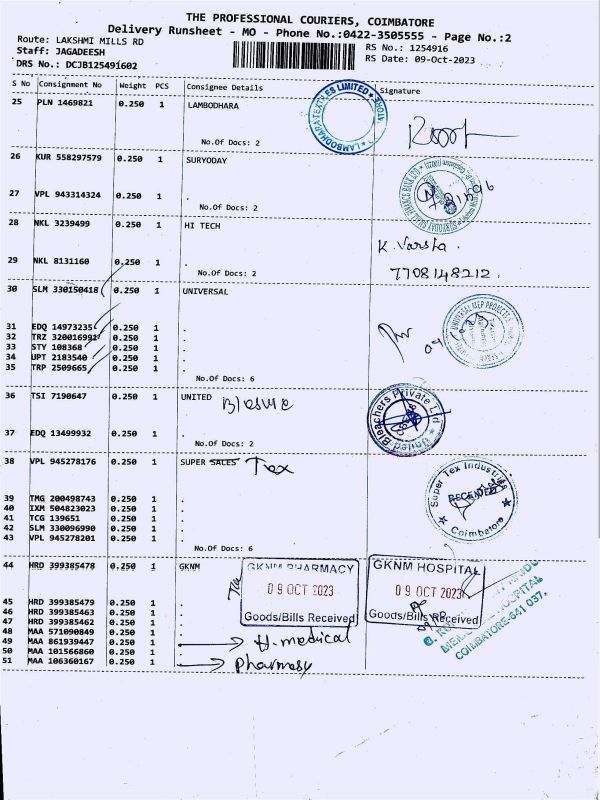 THE PROFESSIONAL COURIERS, COIMBATORE
Delivery Runsheet - MO - Phone No.:0422-3505555 - Page No.:2
Route: LAKSHMI MILLS RD
Staff: JAGADEESH
DRS No.: DCJB125491602
RS No.: 1254916
RS Date: 09-Oct-2023
S No Consignment No Weight PCS Consignee Details Signature
25 PLN 1469821 0.250 1 LAMBODHARA
No.Of Docs: 2
26 KUR 558297579 0.250 1 SURYODAY
27 VPL 943314324 0.250 1 .
No.Of Docs: 2
28 NKL 3239499 0.250 1 HI TECH
K. Varsha.
29 NKL 8131160 0.250 1 .
No.Of Docs: 2
7708148212.
30 SLM 330150418 0.250 1 UNIVERSAL
31 EDQ 14973235 0.250 1 .
32 TRZ 320016992 0.250 1 .
33 STY 108368 0.250 1 .
34 UPT 2183540 0.250 1 .
35 TRP 2509665 0.250 1 .
No.Of Docs: 6
36 TSI 7190647 0.250 1 UNITED
United Bleachers Private Ltd
37 EDQ 13499932 0.250 1 .
No.Of Docs: 2
38 VPL 945278176 0.250 1 SUPER SALES Tex
Super Tex Industries
RECEIVED
Coimbatore
39 TMG 200498743 0.250 1 .
40 IXM 504823023 0.250 1 .
41 TCG 139651 0.250 1 .
42 SLM 330096990 0.250 1 .
43 VPL 945278201 0.250 1 .
No.Of Docs: 6
44 HRD 399385478 0.250 1 GKNM
GKNM PHARMACY
09 OCT 2023
Goods/Bills Received
GKNM HOSPITAL
09 OCT 2023
Goods/Bills Received
45 HRD 399385479 0.250 1 .
46 HRD 399385463 0.250 1 .
47 HRD 399385462 0.250 1 .
48 MAA 571090849 0.250 1 .
49 MAA 861939447 0.250 1 . H. medical
50 MAA 101566860 0.250 1 .
51 MAA 106360167 0.250 1 . Pharmasy
HOSPITAL
COIMBATORE-641 037.